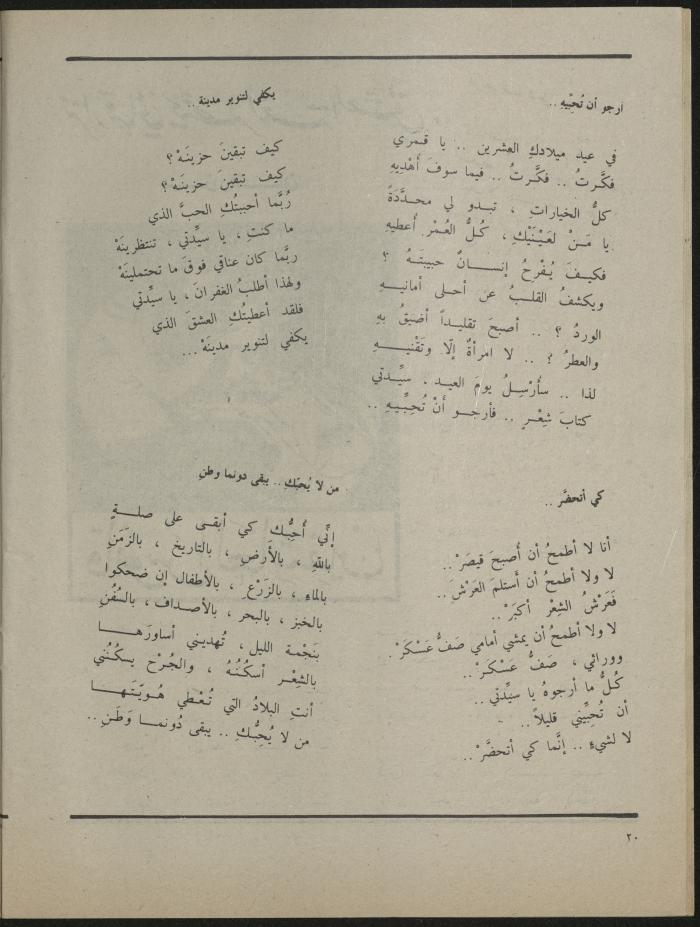 أرجو أن تُحبّيهِ ..
في عيد ميلادكِ العشرين .. يا قمَري
فكَّرتُ .. فكَّرتُ .. فيما سوفَ أهْدِيهِ
كلُّ الخياراتِ ، تبدو لي محدَّدَةً
يا مَنْ لعَيْنَيْكِ ، كُلُّ العُمْرِ أُعطيهِ
فكيفَ يُفْرحُ إنسانٌ حبيبتَهُ ؟
ويكشفُ القلبُ عن أحلى أمانيهِ
الوردُ ؟ .. أصبحَ تقليداً أضيقُ بهِ
والعطرُ ؟ .. لا امرأةٌ إلّا وتَقْنيهِ
لذا .. سأُرْسِلُ يومَ العيد . سيِّدتي
كتابَ شِعْرٍ .. فأرجو أنْ تُحِبِّيهِ ..
كي أتحضَّر ..
أنا لا أطمحُ أن أُصبحَ قيصَرْ ..
لا ولا أطمحُ أن أستلمَ العَرْشَ ..
فَعَرْشُ الشِعْرِ أكبَرْ ..
لا ولا أطمحُ أن يمشي أمامي صَفُّ عَسْكَرْ .
وورائي ، صَفُّ عَسْكَرْ ..
كُلُّ ما أرجوهُ يا سيِّدتي ..
أن تُحِبِّيني قليلاً ..
لا لشيءٍ .. إنَّما كي أتحضَّرْ ..
يكفي لتنوير مدينة ..
كيف تبقينَ حزينَهْ ؟
كيف تبقينَ حزينَهْ ؟
رُبَّما أحببتُكِ الحبَّ الذي
ما كنتِ ، يا سيِّدتي ، تنتظرينَهْ
ربَّما كان عناقي فوقَ ما تحتملينَهْ
ولهذا أطلبُ الغفرانَ ، يا سيِّدتي
فلقد أعطيتُكِ العشقَ الذي
يكفي لتنوير مدينَهْ ...
من لا يُحبّكِ .. يبقى دونما وطنِ
إنِّي أُحِبُّكِ كي أبقى على صلةٍ
باللهِ ، بالأرضِ ، بالتاريخِ ، بالزَمَنِ
بالماءِ ، بالزَرْعِ ، بالأطفال إن ضحكوا
بالخبزِ ، بالبحرِ ، بالأصداف ، بالسُفُنِ
بنَجْمة الليل ، تُهديني أساورَها
بالشِعْرِ أسكُنُهُ ، والجُرْحِ يسكُنُني
أنتِ البلادُ التي تُعْطي هُوِيّتَها
من لا يُحِبُّكِ .. يبقى دُونما وَطَنِ ..
٢٠